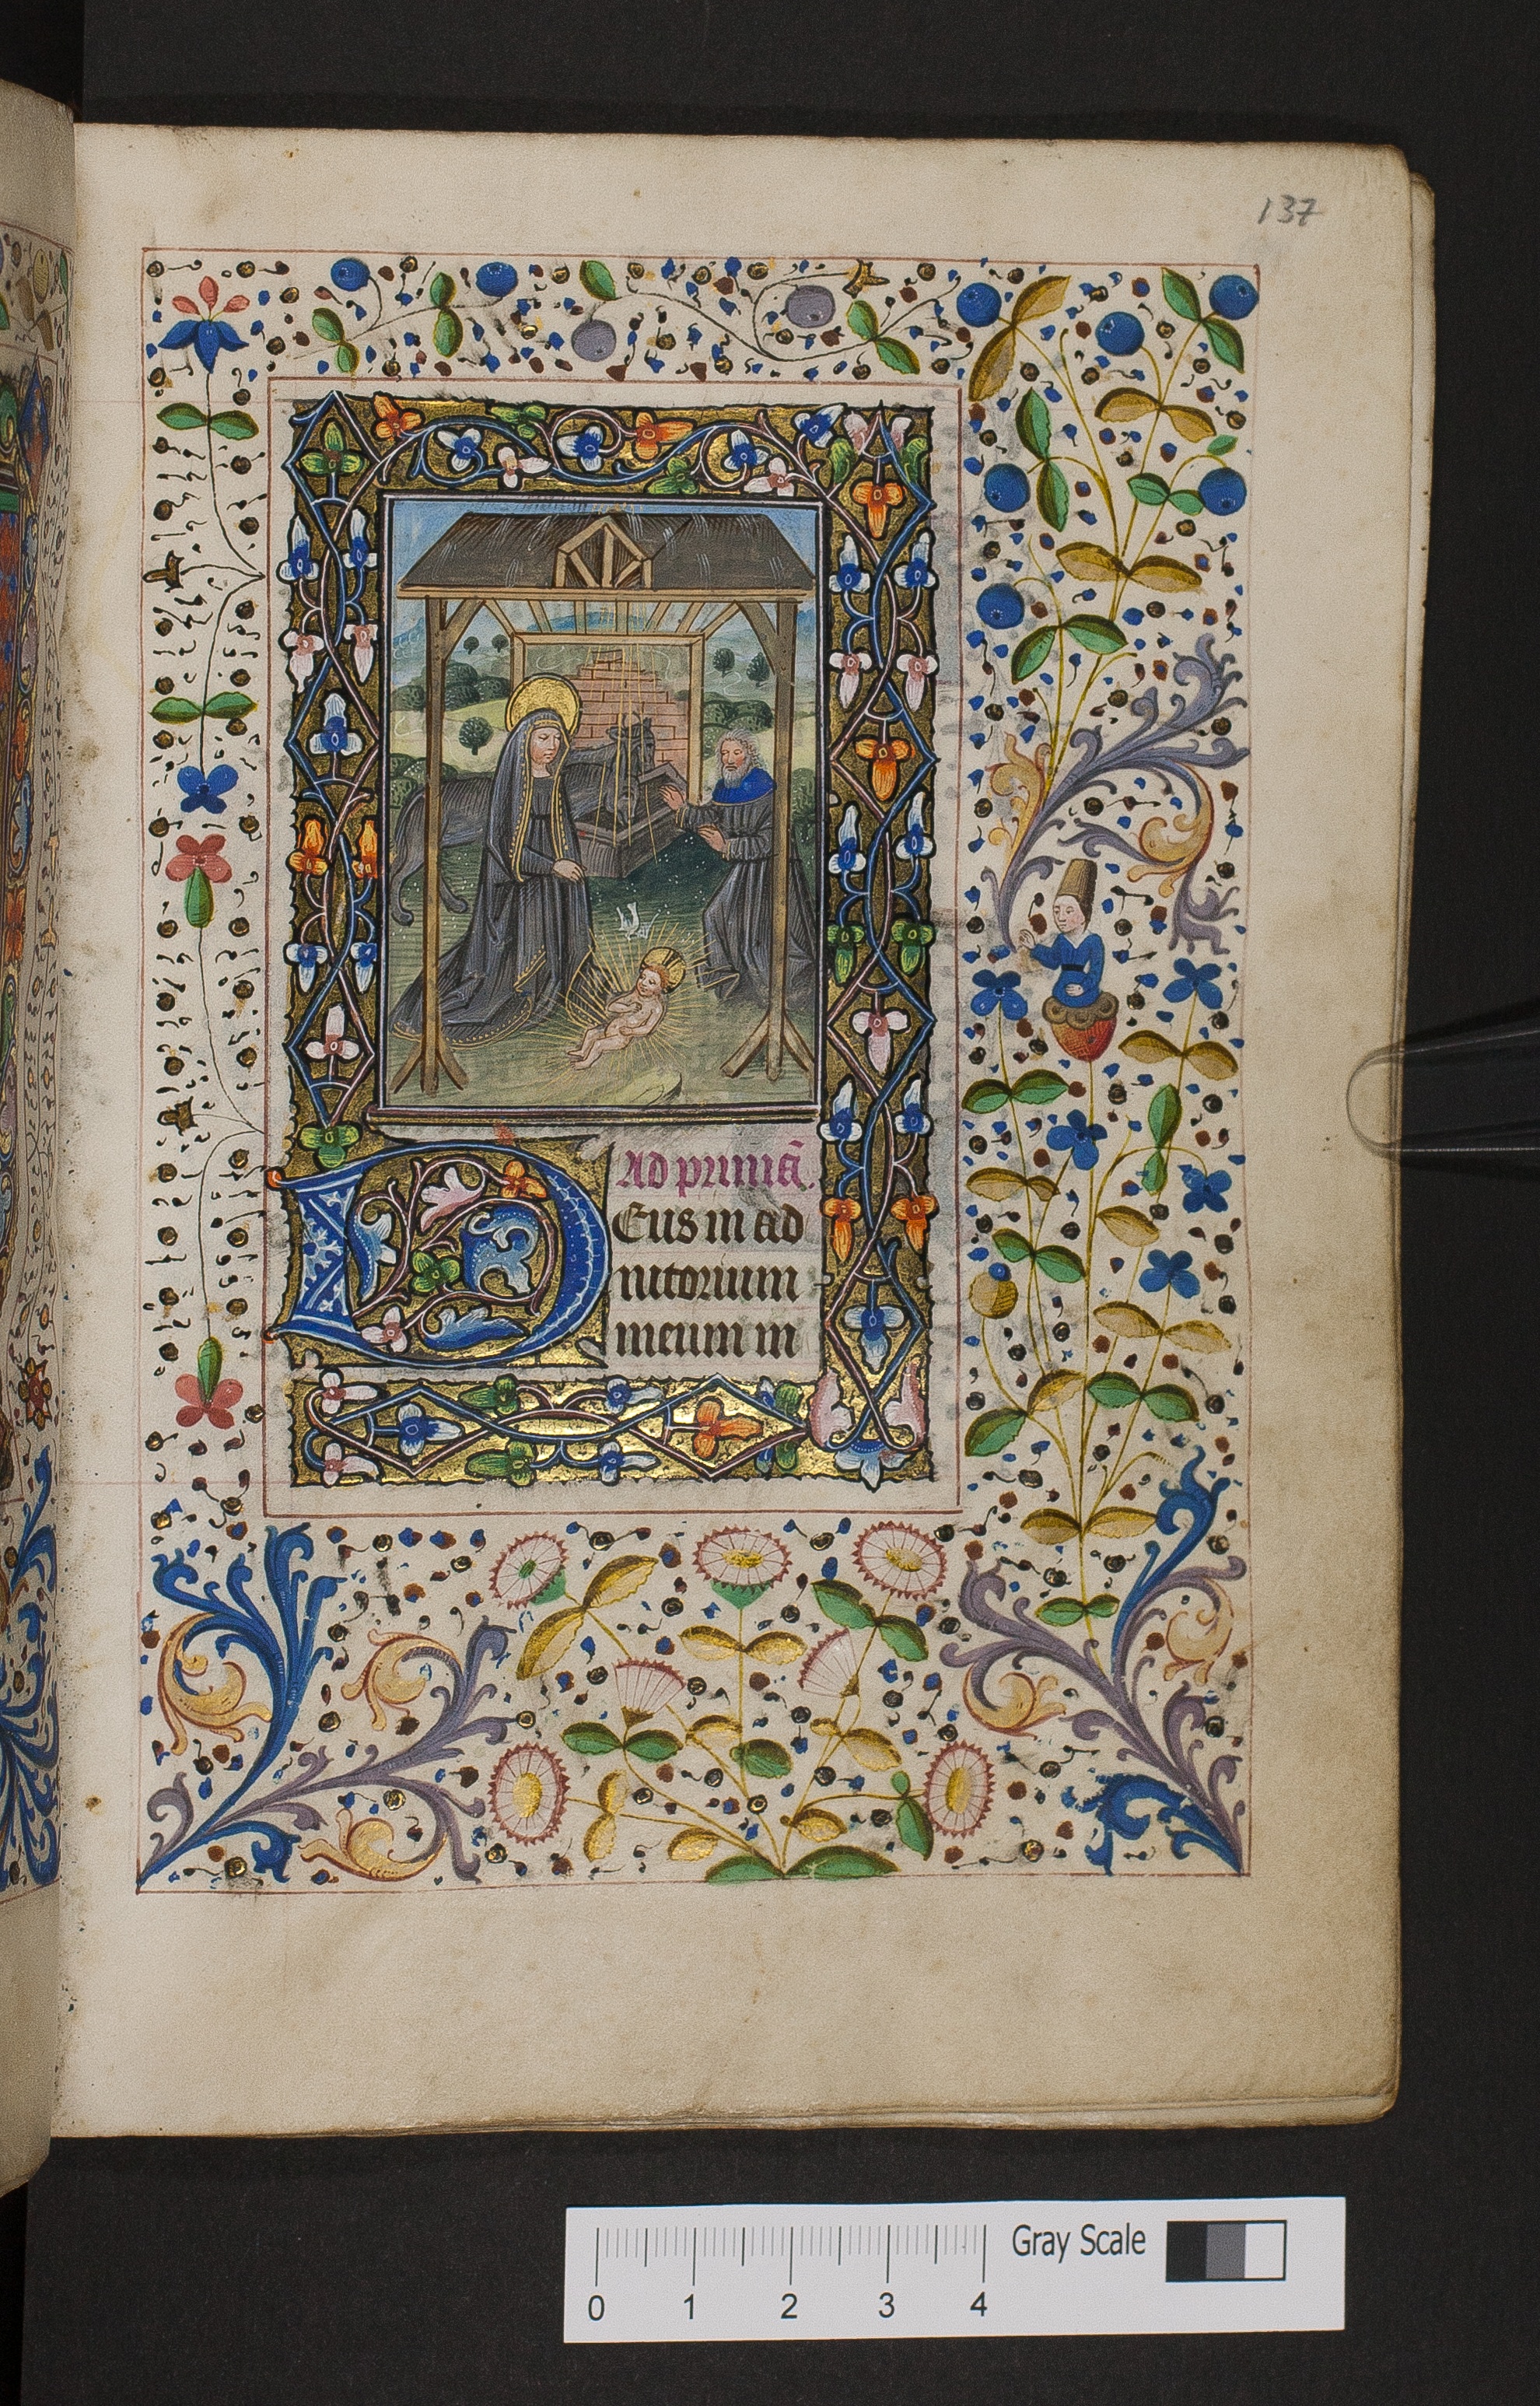 137
Ad primā.
DEus in ad
iutorium
meum in
Gray Scale
0 1 2 3 4